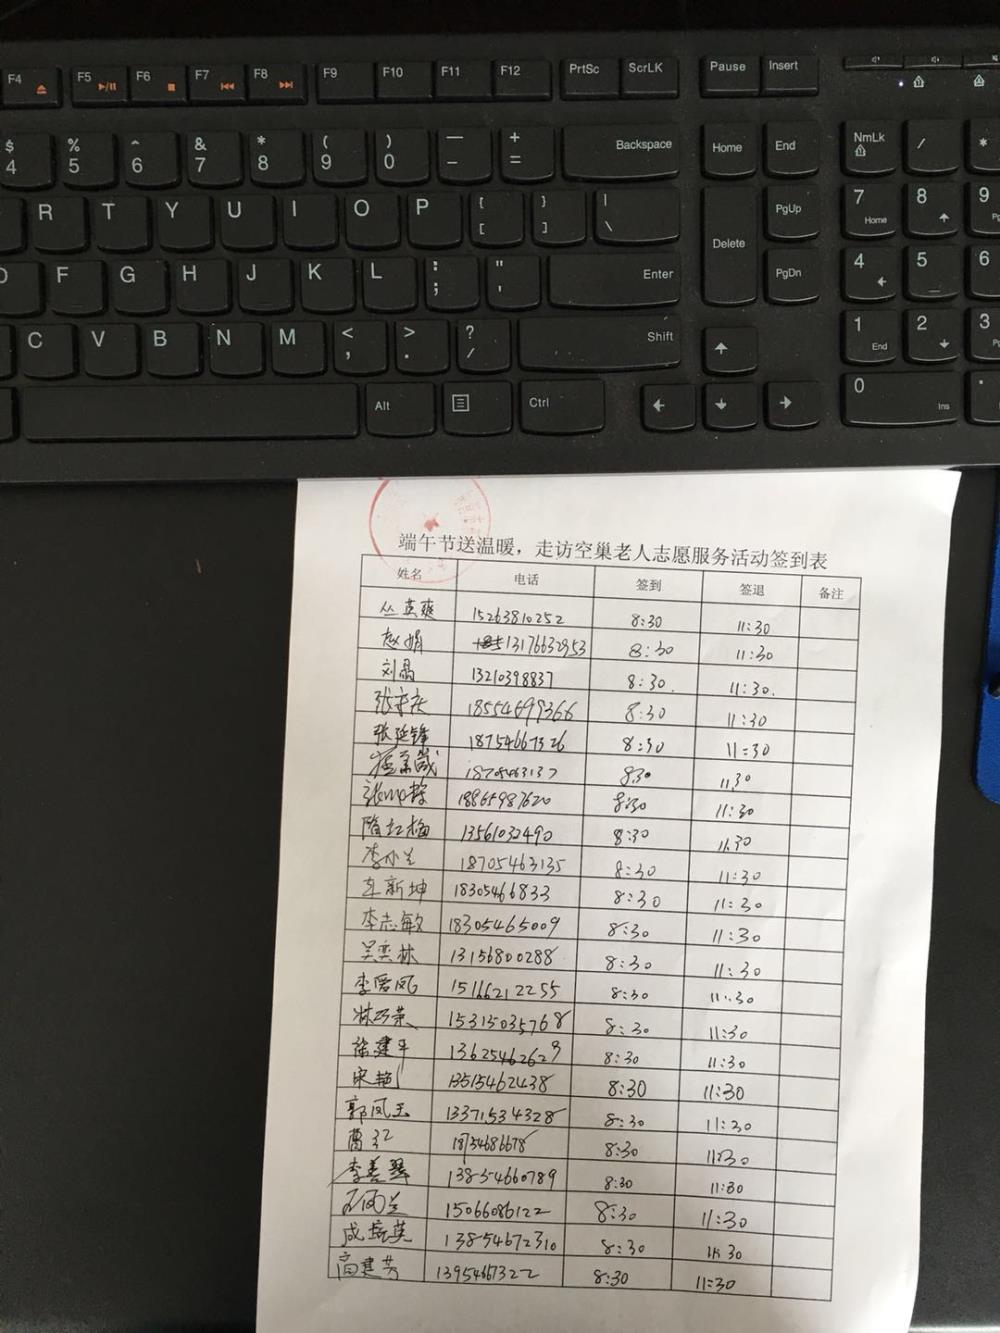 F4 F5 F6 F7 F8 F9 F10 F11 F12 PrtSc ScrLK Pause Insert
$ 4 % 5 ^ 6 & 7 * 8 ( 9 ) 0 — - + = Backspace Home End NmLk / *
R T Y U I O P { [ } ] | \ Delete PgUp 7 Home 8 9
D F G H J K L : ; " ' Enter PgDn 4 5 6
C V B N M < , > . ? / Shift 1 End 2 3
Alt Ctrl 0 Ins .
端午节送温暖，走访空巢老人志愿服务活动签到表
姓名 电话 签到 签退 备注
丛英爽 15263810252 8:30 11:30
赵娟 13176632953 8:30 11:30
刘晶 13210398837 8:30. 11:30.
18554699366 8:30 11:30
张延锋 18754667326 8:30 11:30
8:30 11:30
18865987620 8:30 11:30
隋红梅 13561032490 8:30 11:30
李小兰 18705463135 8:30 11:30
车新坤 18305466833 8:30 11:30
李志敏 18305465009 8:30 11:30
吴奕林 13156800288 8:30 11:30
李爱凤 15166212255 8:30 11:30
林巧荣 15315035768 8:30 11:30
徐建平 13625462629 8:30 11:30
宋艳 13515462438 8:30 11:30
郭凤玉 13371534328 8:30 11:30
曹红 18754686678 8:30 11:30
李善琴 13854660789 8:30 11:30
15066086122 8:30 11:30
成培英 13854672310 8:30 11:30
高建芳 13954667322 8:30 11:30